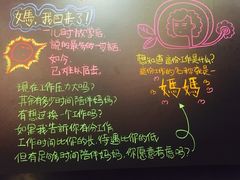 媽，我回来了！
儿时放学后
說的最多的一句話
如今
已难以启齿
想知道這份工作是什么？
這份工作的名称就是—
媽媽
現在工作压力大嗎？
其余有多少时间陪伴妈妈？
有想过换一个工作嗎？
如果我告訴你有份工作
工作时间比你的长，待遇比你的低
但有足够时间陪伴妈妈，你愿意考慮嗎？